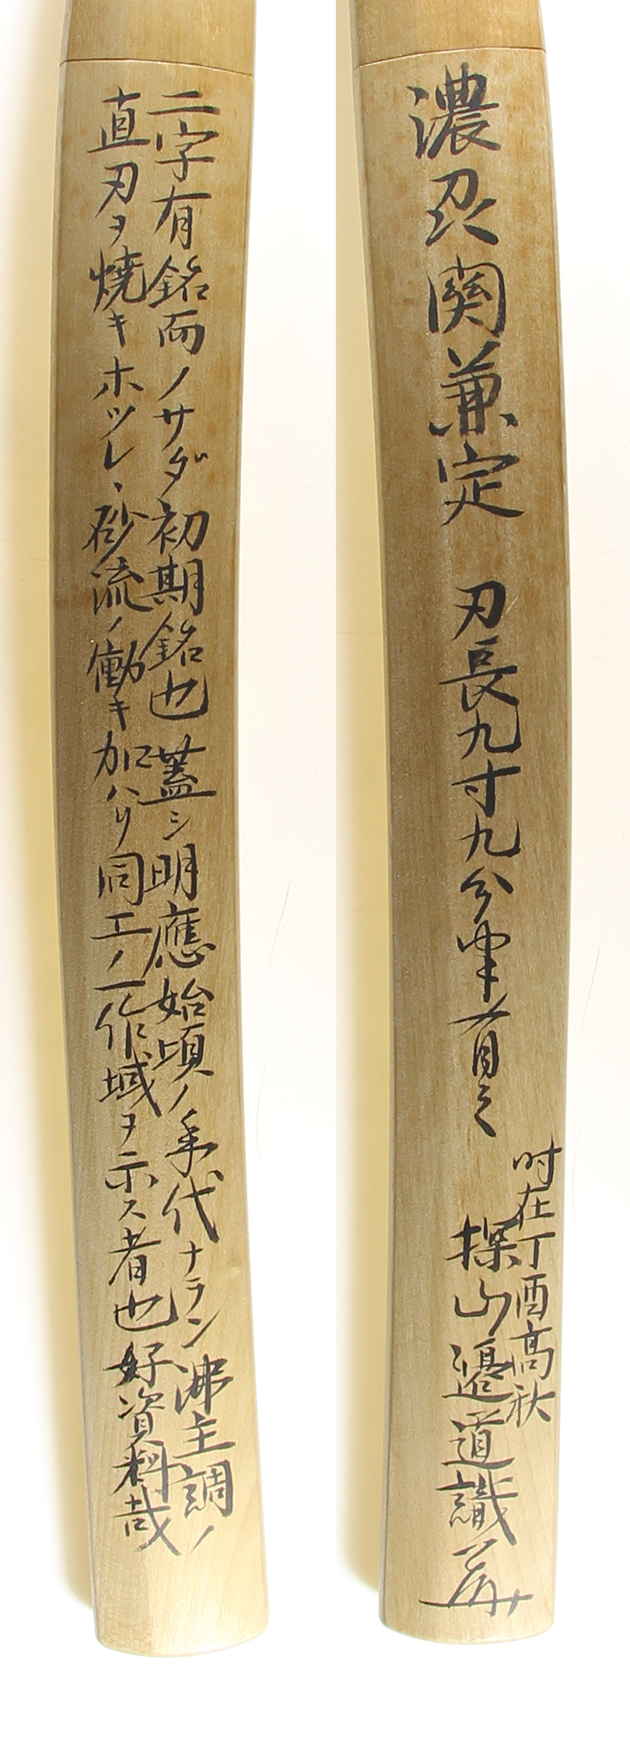 濃刕関兼定 刃長九寸九分半有之
时在丁酉高秋
探山邉道識
二字有銘而ノサダ初期銘也 蓋シ明應始頃ノ年代ナラン 沸主調ノ
直刃ヲ焼キホツレ、砂流ノ働キ加ハリ同工ノ一作域ヲ示ス者也好資料哉